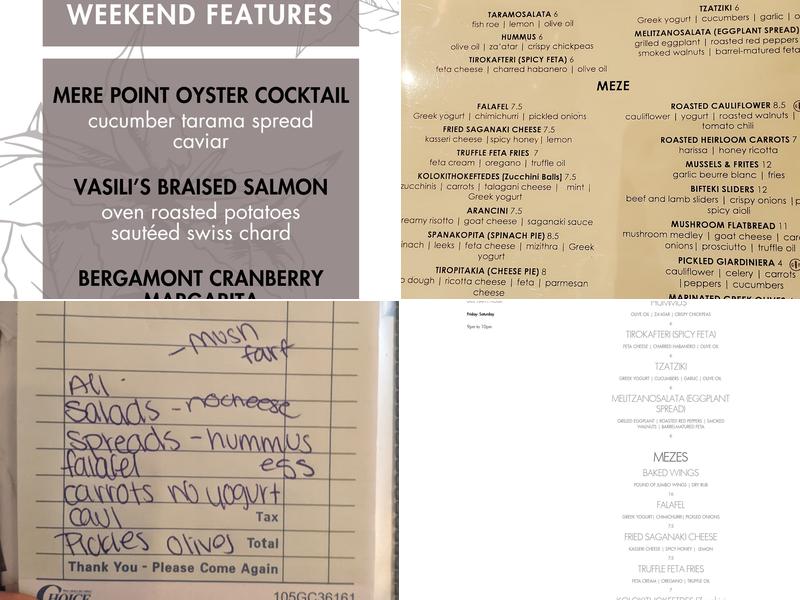 WEEKEND FEATURES
MERE POINT OYSTER COCKTAIL
cucumber tarama spread
caviar
VASILI'S BRAISED SALMON
oven roasted potatoes
sautéed swiss chard
BERGAMONT CRANBERRY
MARGARITA
TARAMOSALATA 6
fish roe | lemon | olive oil
HUMMUS 6
olive oil | za'atar | crispy chickpeas
TIROKAFTERI (SPICY FETA) 6
feta cheese | charred habanero | olive oil
TZATZIKI 6
Greek yogurt | cucumbers | garlic | o
MELITZANOSALATA (EGGPLANT SPREAD)
grilled eggplant | roasted red peppers
smoked walnuts | barrel-matured feta
MEZE
FALAFEL 7.5
Greek yogurt | chimichurri | pickled onions
FRIED SAGANAKI CHEESE 7.5
kasseri cheese |spicy honey| lemon
TRUFFLE FETA FRIES 7
feta cream | oregano | truffle oil
KOLOKITHOKEFTEDES [Zucchini Balls] 7.5
zucchinis | carrots | talagani cheese | mint |
Greek yogurt
ARANCINI 7.5
reamy risotto | goat cheese | saganaki sauce
SPANAKOPITA (SPINACH PIE) 8.5
inach | leeks | feta cheese | mizithra | Greek
yogurt
TIROPITAKIA (CHEESE PIE) 8
o dough | ricotta cheese | feta | parmesan
cheese
ROASTED CAULIFLOWER 8.5
cauliflower | yogurt | roasted walnuts |
tomato chili
ROASTED HEIRLOOM CARROTS 7
harissa | honey ricotta
MUSSELS & FRITES 12
garlic beurre blanc | fries
BIFTEKI SLIDERS 12
beef and lamb sliders | crispy onions |p
spicy aioli
MUSHROOM FLATBREAD 11
mushroom medley | goat cheese | car
onions| prosciutto | truffle oil
PICKLED GIARDINIERA 4
cauliflower | celery | carrots
|peppers | cucumbers
MARINATED GREEK OLIVES
- mush
tart
All
Salads - no cheese
spreads - hummus
falafel egg
carrots no yogurt
caul Tax
Pickles Olives Total
Thank You - Please Come Again
CHOICE 105GC36161
Friday Saturday
9pm to 10pm
HUMMUS
OLIVE OIL | ZA'ATAR | CRISPY CHICKPEAS
6
TIROKAFTERI (SPICY FETA)
FETA CHEESE | CHARRED HABANERO | OLIVE OIL
6
TZATZIKI
GREEK YOGURT | CUCUMBERS | GARLIC | OLIVE OIL
6
MELITZANOSALATA (EGGPLANT
SPREAD)
GRILLED EGGPLANT | ROASTED RED PEPPERS | SMOKED
WALNUTS | BARREL-MATURED FETA
6
MEZES
BAKED WINGS
POUND OF JUMBO WINGS | DRY RUB
16
FALAFEL
GREEK YOGURT| CHIMICHURRI| PICKLED ONIONS
7.5
FRIED SAGANAKI CHEESE
KASSERI CHEESE | SPICY HONEY | LEMON
7.5
TRUFFLE FETA FRIES
FETA CREAM | OREGANO | TRUFFLE OIL
7